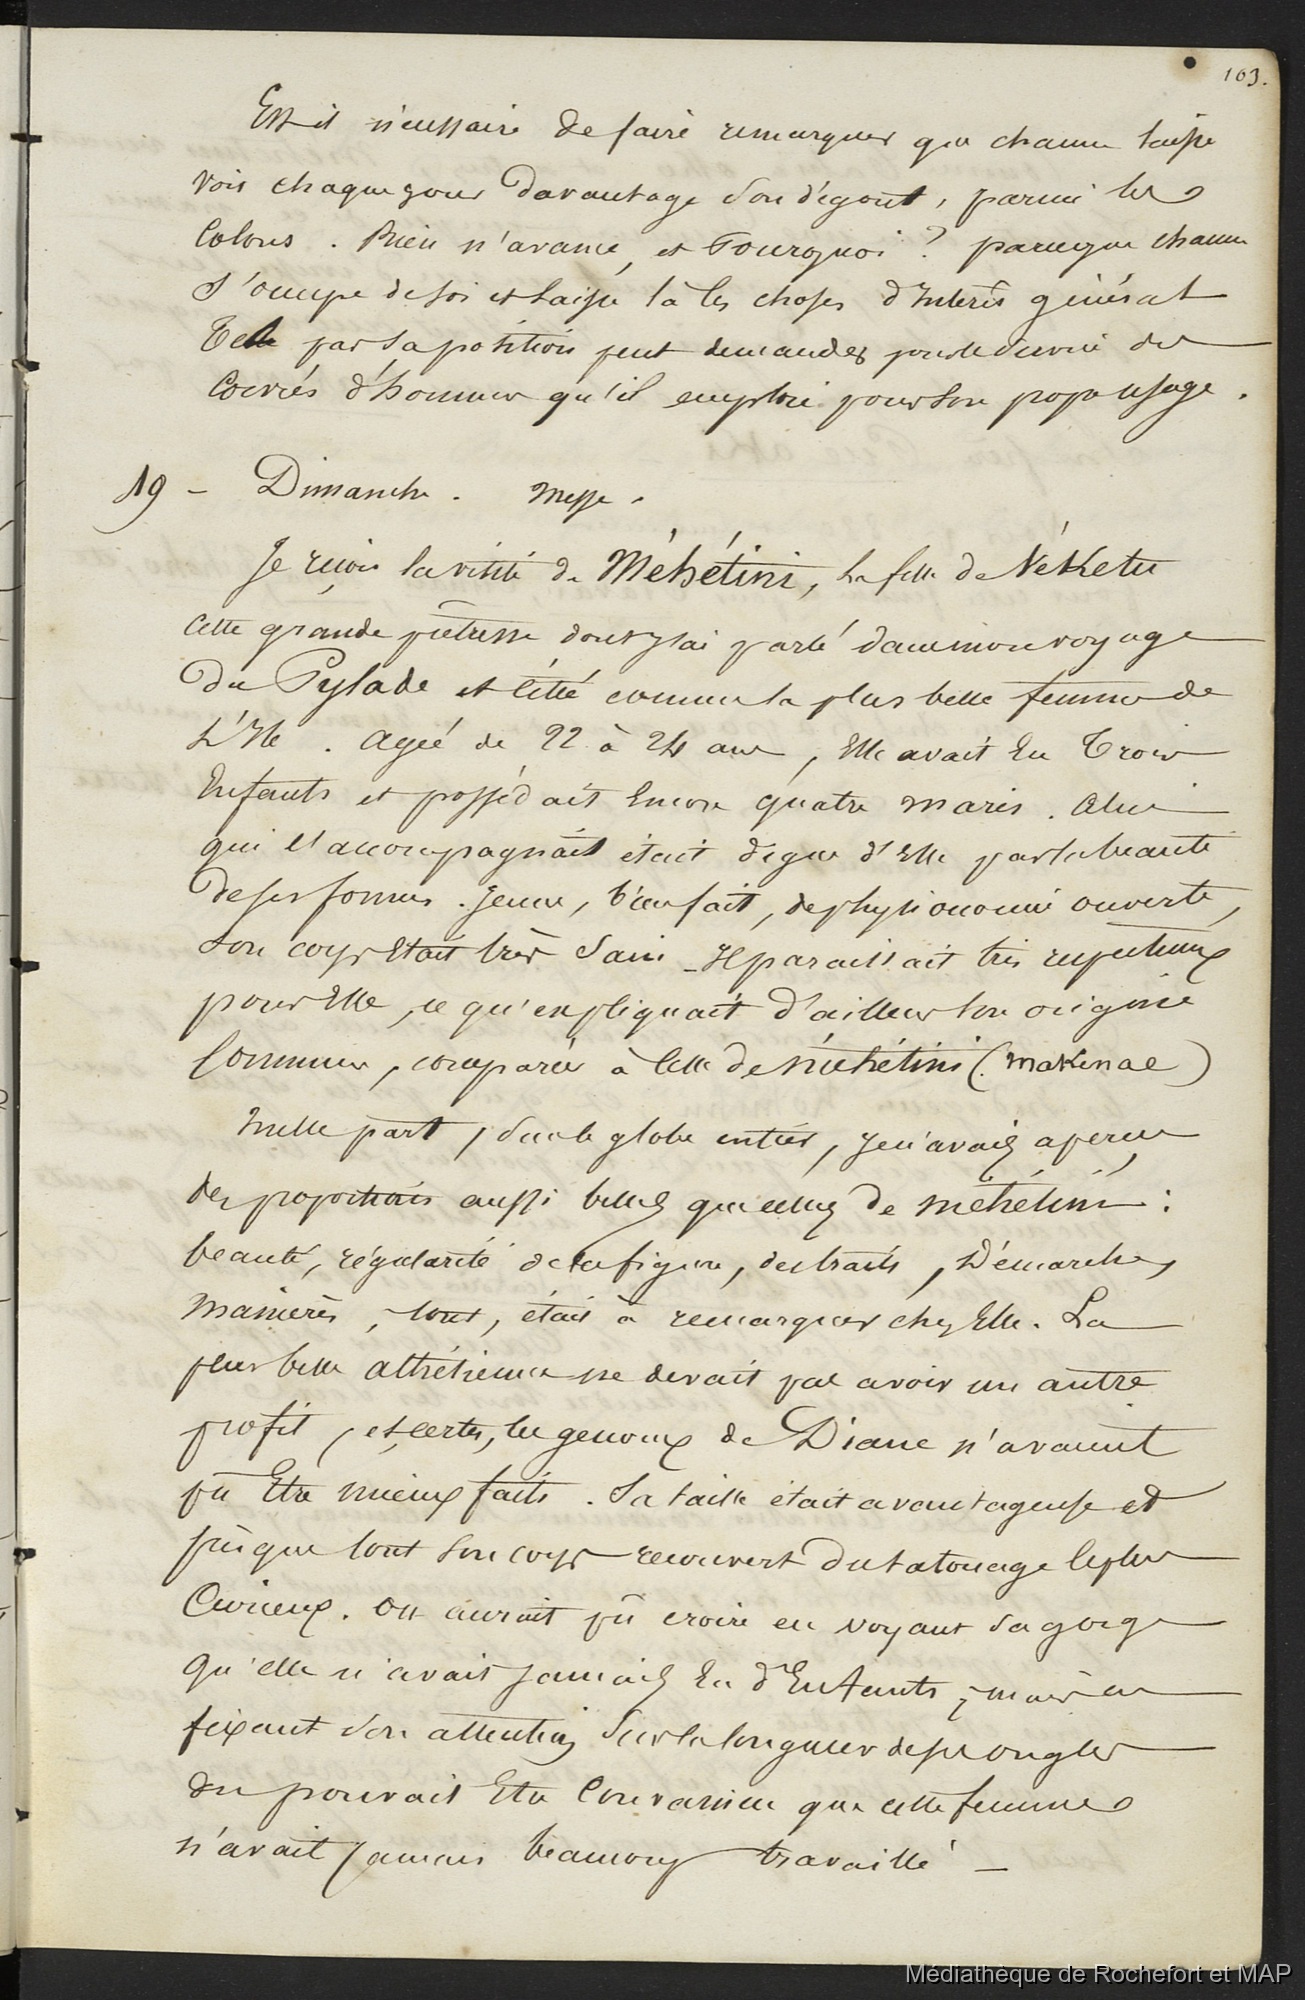 163.
Est il nécessaire de faire remarquer que chacun laisse
voir chaque jour davantage son dégout, parmi les
Colons. Rien n'avance, et Pourquoi? parceque chacun
s'occupe de soi et laisse là les choses d'Interès général
Tel par sa position peut demander pour le service des
Corvées d'hommes qu'il emploie pour son propre usage.
19 - Dimanche. Messe.
Je reçois la visite de Méhétini, la fille de Véketu
Cette grande prêtresse dont j'ai parlé dans mon voyage
Du Pylade et citée comme la plus belle femme de
L'Ile. Agée de 22 à 24 ans, Elle avait Eu Trois
Enfants et possédait Encore quatre maris. Celui
qui l'accompagnait était digne d'Elle par la beauté
de ses formes. Jeune, bien fait, de physionomie ouverte,
Son corps Etait très Sain - Il paraissait très respectueux
pour Elle, ce qu'expliquait d'ailleurs son origine
Commune, comparée à Celle de Méhétini (Makinae)
Nulle part, sur le globe entier, je n'avais aperçu
des proportions aussi belles que celles de Méhétini:
beauté, régularité de la figure, des traits, Démarche,
Manières, tout, était à remarquer chez Elle. La
plus belle athénienne ne devait pas avoir un autre
profil, et, certes, les genoux de Diane n'avaient
pû Etre mieux faits. Sa taille était avantageuse et
presque tout son corps recouvert du tatouage le plus
Curieux. On aurait pû croire en voyant sa gorge
qu'elle n'avait jamais Eu d'Enfants; mais en
fixant son attention Sur la longueur de ses ongles
on pouvait Etre Convaincu que cette femme
n'avait jamais beaucoup travaillé -
Médiathèque de Rochefort et MAP